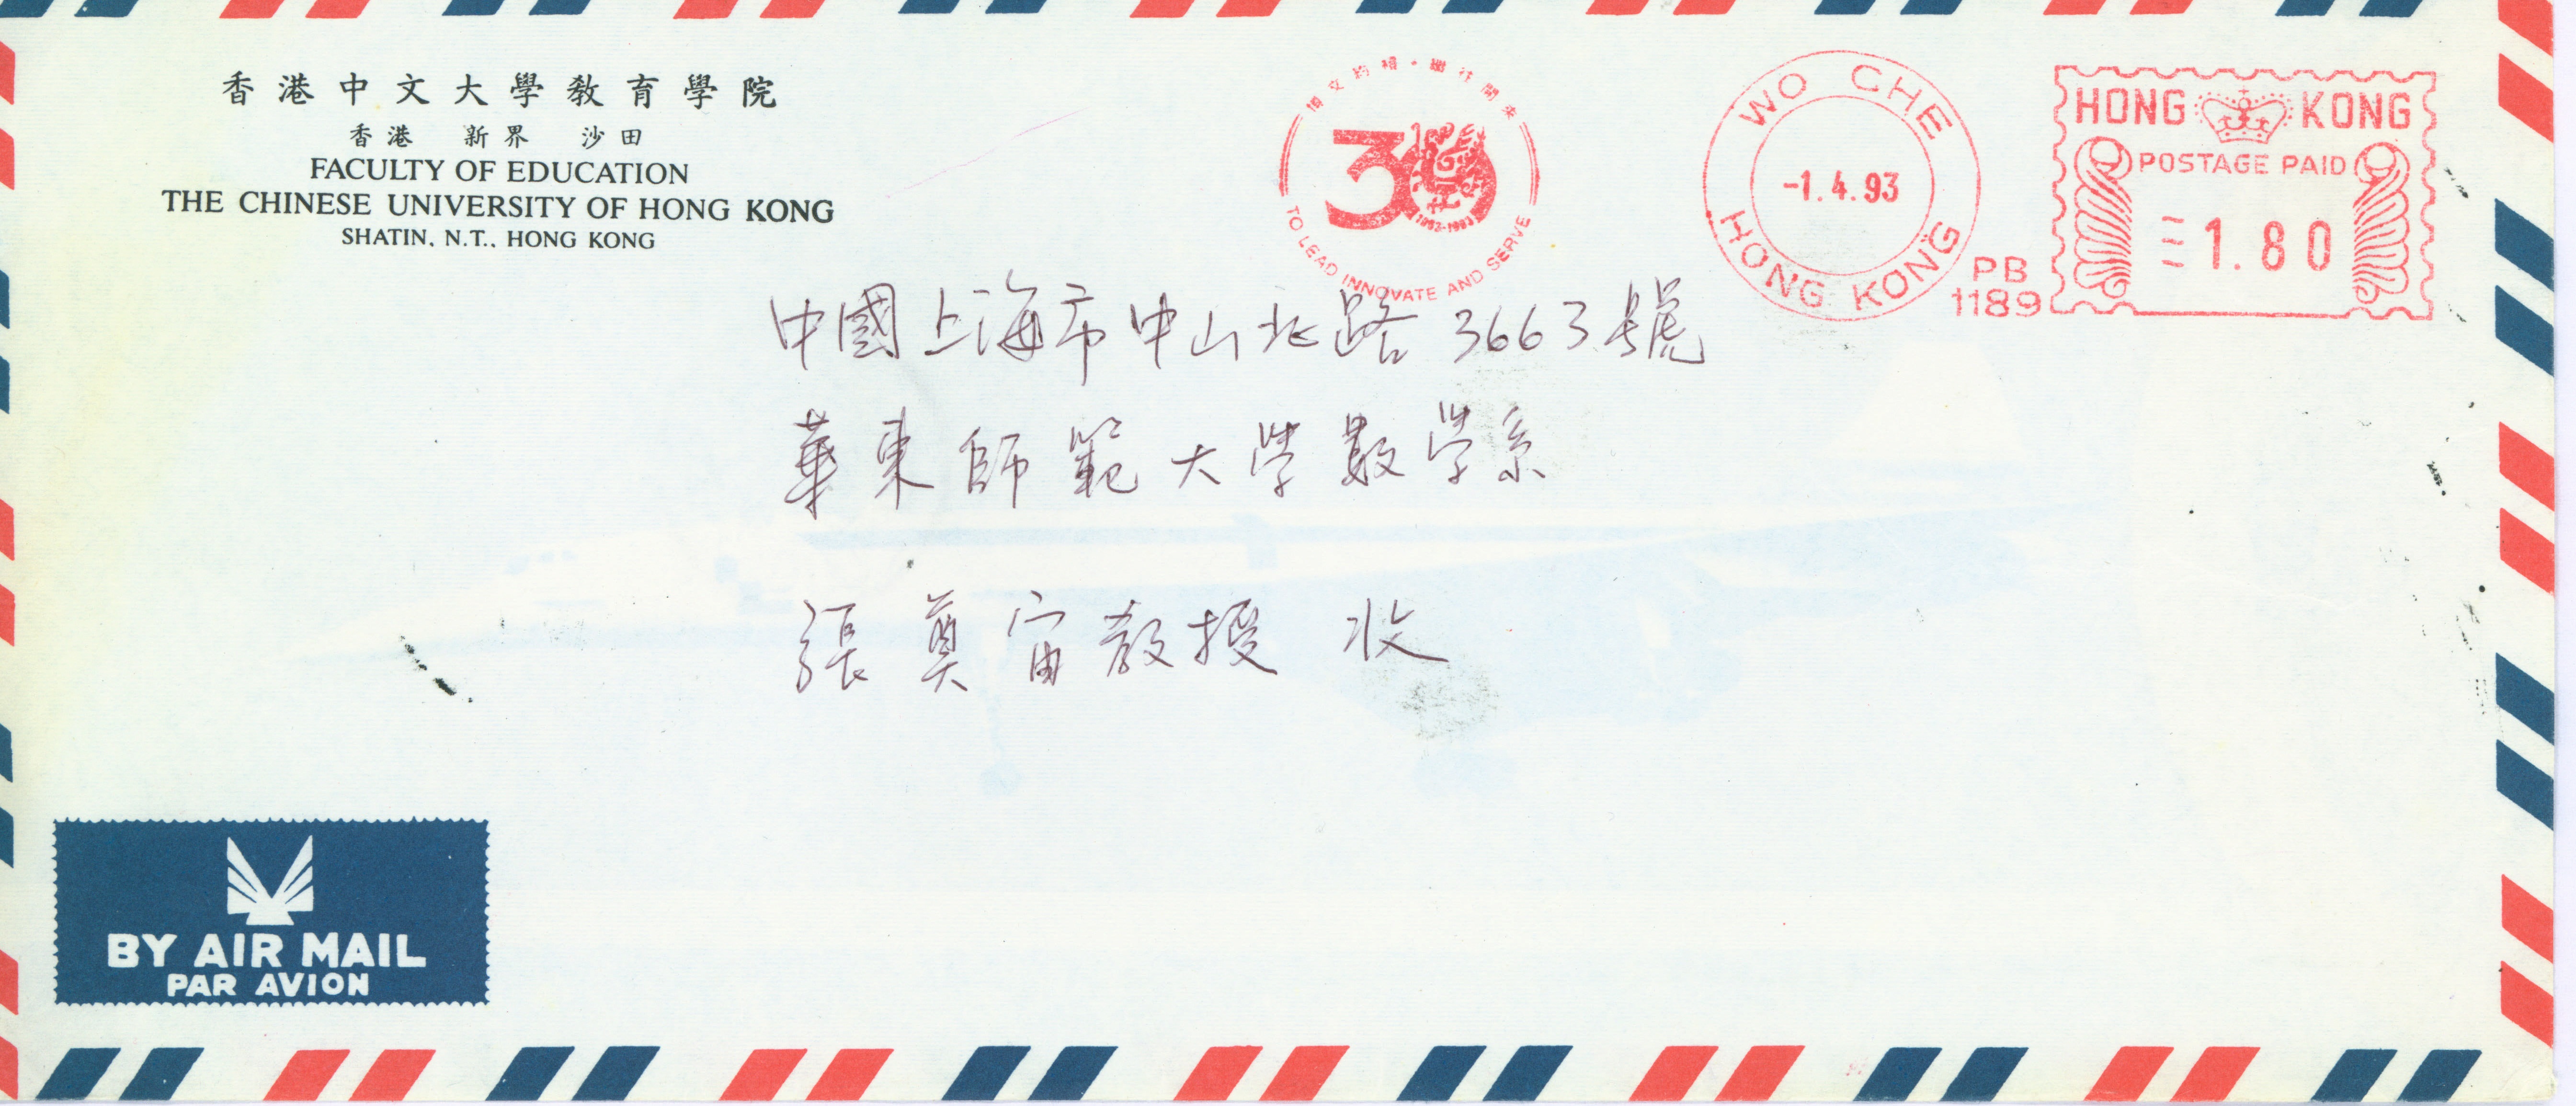 香港中文大學教育學院
香港 新界 沙田
FACULTY OF EDUCATION
THE CHINESE UNIVERSITY OF HONG KONG
SHATIN, N.T., HONG KONG
博文約禮·繼往開來
30
1963-1993
TO LEAD INNOVATE AND SERVE
WO CHE
-1.4.93
HONG KONG
PB
1189
HONG KONG
POSTAGE PAID
1.80
中國上海市中山北路3663號
華東師範大学數学系
張奠宙教授 收
BY AIR MAIL
PAR AVION